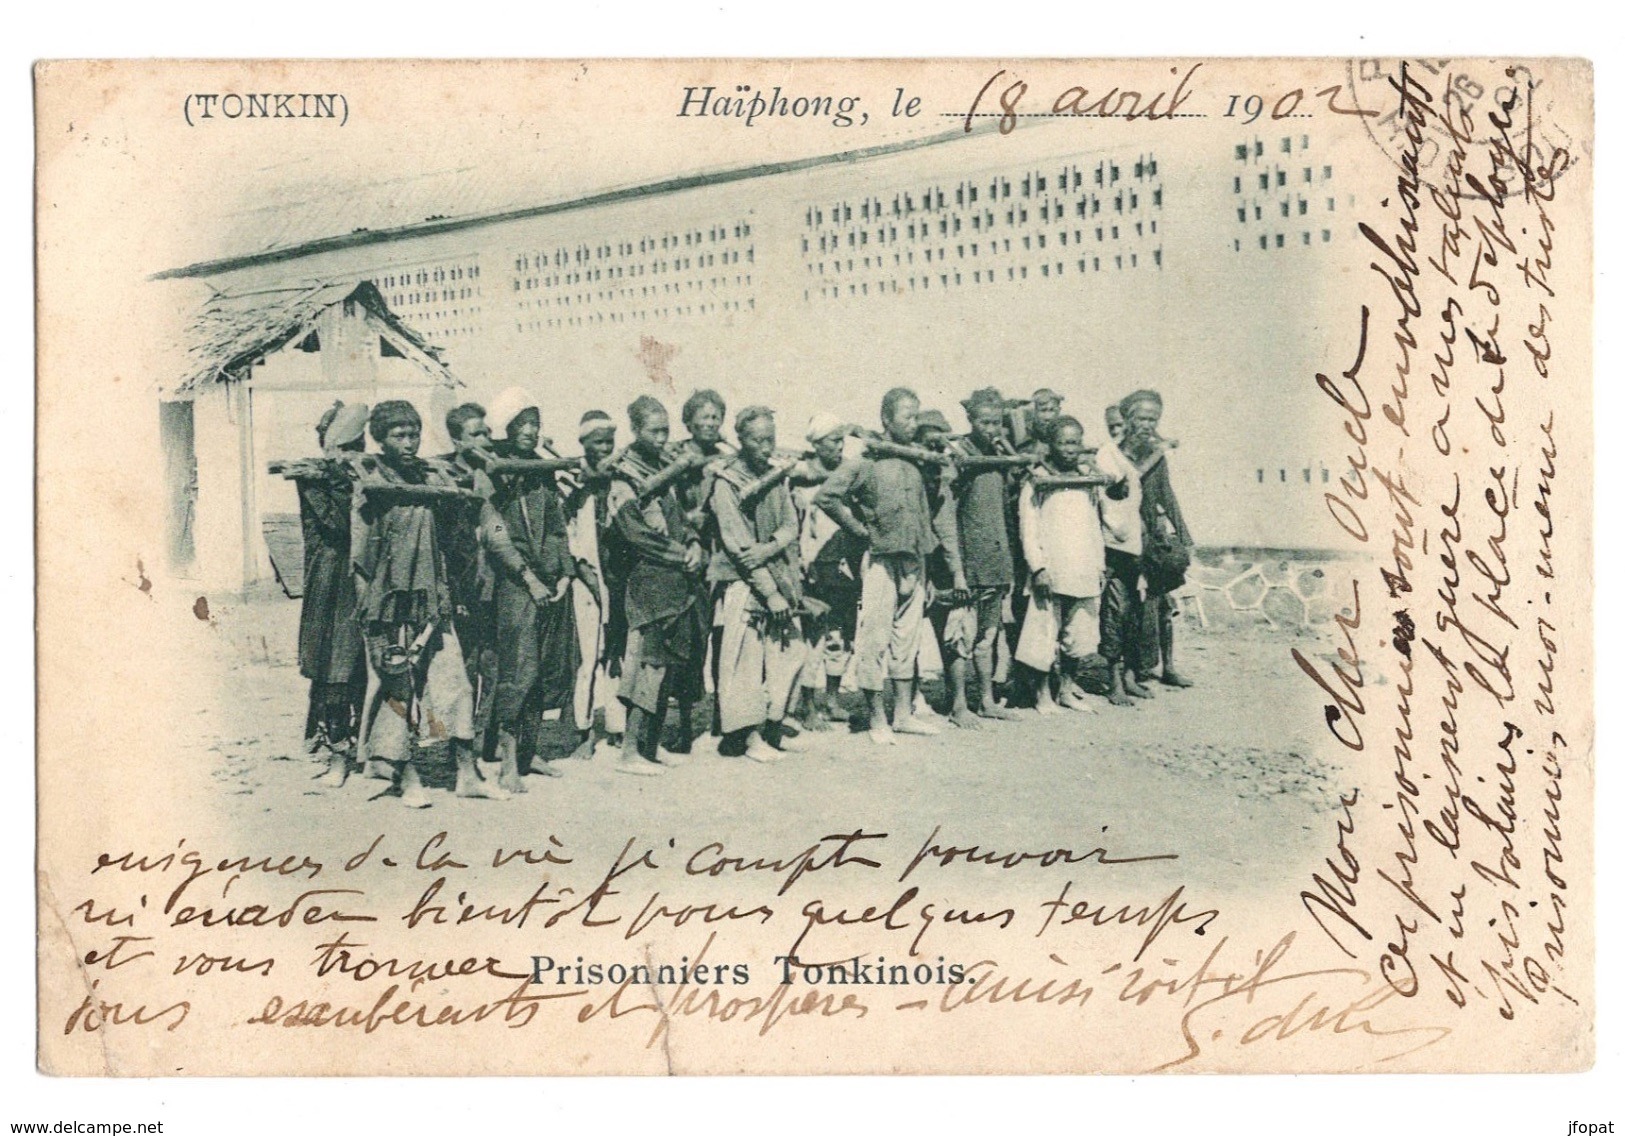 (TONKIN)
Haïphong, le 18 avril 1902
Mon cher oncle
Ces prisonniers sont envahissants
et ne laissent guère à mes talents
épistolaires la place de se déployer
Prisonnier, moi-même des tristes
enigmes de la vie je compte pouvoir
m'évader bientôt pour quelques temps
et vous trouver
tous exubérants et prospères - Ainsi soit-il
Prisonniers Tonkinois.
www.delcampe.net
jfopat